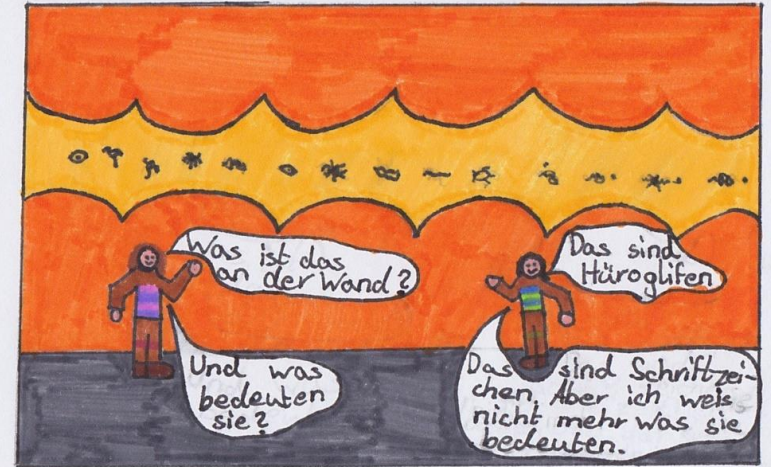 Was ist das
an der Wand?
Das sind
Hüroglifen
Und was
bedeuten
sie?
Das sind Schriftzei-
chen. Aber ich weis
nicht mehr was sie
bedeuten.